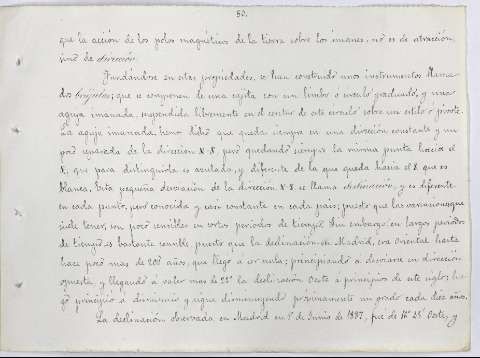 80.
que la acción de los polos magnéticos de la tierra sobre los imanes, no es de atracción,
sino de dirección.
Fundándose en estas propiedades, se han construido unos instrumentos llama-
dos brújulas; que se componen de una cajita con un limbo o círculo graduado, y una
aguja imanada suspendida libremente en el centro de este círculo sobre un estilo ó pivote.
La aguja imanada, hemos dicho que queda siempre en una dirección constante y un
poco separada de la dirección N-S. pero quedando siempre la misma punta hacia el
N. que para distinguirla es azulada, y diferente de la que queda hacia el S. que es
blanca. Esta pequeña desviación de la dirección N-S. se llama declinación, y es diferente
en cada punto, pero conocida y casi constante en cada país; puesto que las variaciones que
suele tener, son poco sensibles en cortos períodos de tiempo. Sin embargo en largos períodos
de tiempo es bastante sensible puesto que la declinación en Madrid, era oriental hasta
hace poco mas de 200 años, que llegó a ser nula; principiando a desviarse en dirección
opuesta y llegando á valer mas de 22° la declinación Oeste a principios de este siglo; lue-
go principió a disminuir y sigue disminuyendo próximamente un grado cada diez años.
La declinación observada en Madrid en 1° de Junio de 1897, fue de 25' Oeste, y